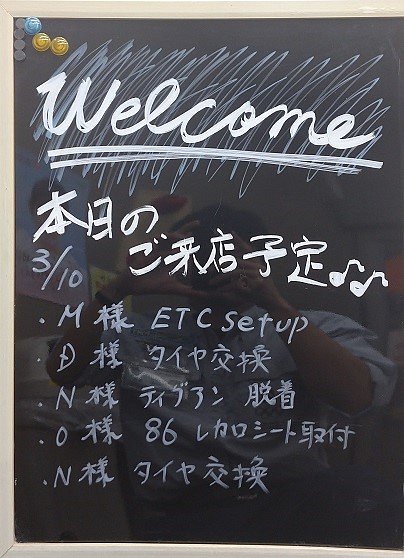 Welcome
本日の
ご来店予定♪♪
3/10
・M様 ETC Setup
・D様 タイヤ交換
・N様 ティグアン 脱着
・O様 86 レカロシート取付
・N様 タイヤ交換